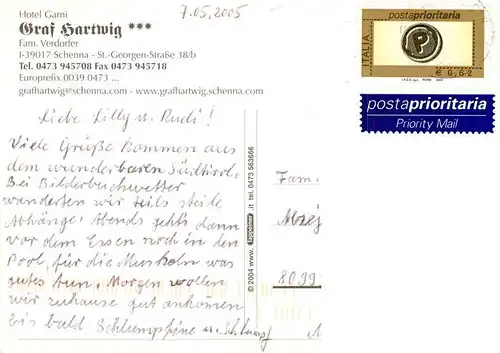 Hotel Garni
Graf Hartwig ***
Fam. Verdorfer
I-39017 Schenna - St.-Georgen-Straße 38/b
Tel. 0473 945708 Fax 0473 945718
Europrefix 0039 0473 ...
grafhartwig@schenna.com - www.grafhartwig.schenna.com
7.05.2005
ITALIA
postaprioritaria
P
€ 0,62
postaprioritaria
Priority Mail
Liebe Lilly u. Rudi!
Viele Grüße kommen aus
dem wunderbaren Südtirol.
Bei Bilderbuchwetter
wanderten wir teils steile
Abhänge, Abends gehts dann
vor dem Essen noch in den
Pool, für die Muskeln was
gutes tun. Morgen wollen
wir zuhause gut ankommen
bis bald Schlumpfine u. Schlumpf
© 2004 www. .it tel. 0473 563666
Fam.
8099